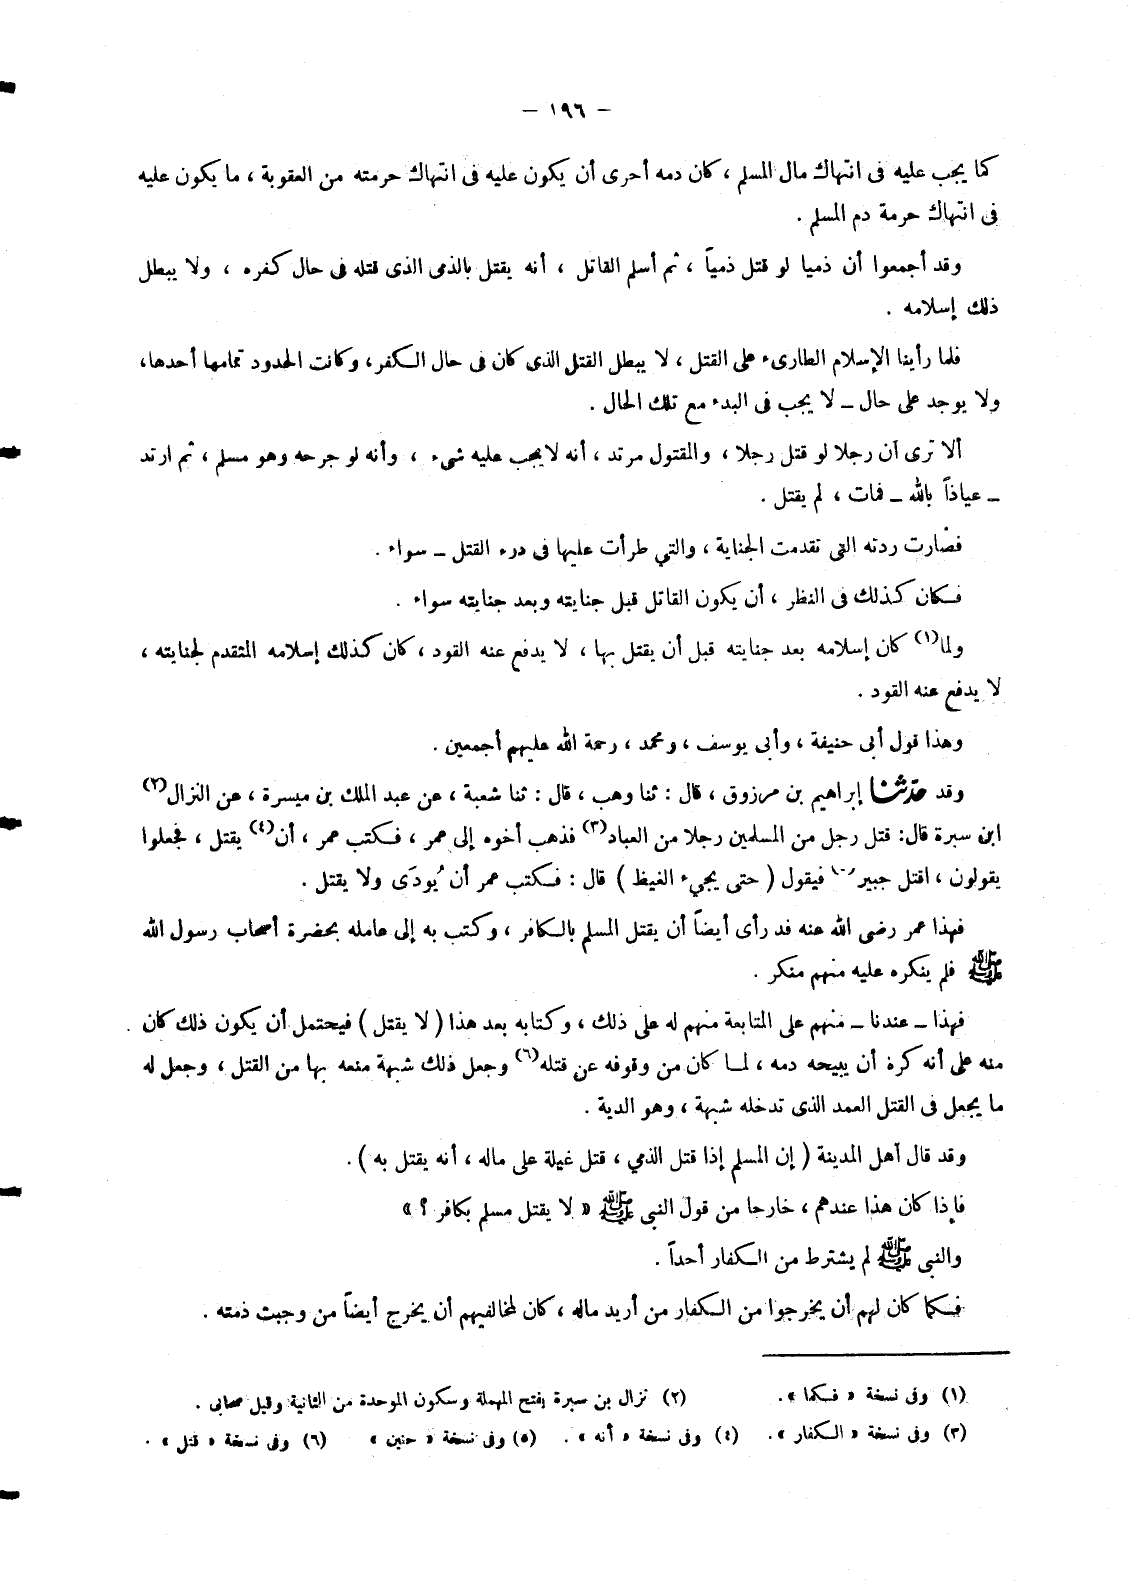 – ١٩٦ –
كما يجب عليه فى انتهاك مال المسلم ، كان دمه أحرى أن يكون عليه فى انتهاك حرمته من العقوبة ، ما يكون عليه
فى انتهاك حرمة دم المسلم .
وقد أجمعوا أن ذميا لو قتل ذمياً ، ثم أسلم القاتل ، أنه يقتل بالذمى الذى قتله فى حال كفره ، ولا يبطل
ذلك إسلامه .
فلما رأينا الإسلام الطارىء على القتل ، لا يبطل القتل الذى كان فى حال الكفر، وكانت الحدود تمامها أحدها،
ولا يوجد على حال – لا يجب فى البدء مع تلك الحال .
ألا ترى أن رجلا لو قتل رجلا ، والمقتول مرتد ، أنه لا يجب عليه شىء ، وأنه لو جرحه وهو مسلم ، ثم ارتد
– عياذاً بالله – فمات ، لم يقتل .
فصارت ردته التى تقدمت الجناية ، والتي طرأت عليها فى درء القتل – سواء .
فكان كذلك فى النظر ، أن يكون القاتل قبل جنايته وبعد جنايته سواء .
ولما(١) كان إسلامه بعد جنايته قبل أن يقتل بها ، لا يدفع عنه القود ، كان كذلك إسلامه المتقدم لجنايته ،
لا يدفع عنه القود .
وهذا قول أبى حنيفة ، وأبى يوسف ، ومحمد ، رحمة الله عليهم أجمعين .
وقد حدّثنا إبراهيم بن مرزوق ، قال : ثنا وهب ، قال : ثنا شعبة ، عن عبد الملك بن ميسرة ، عن النزال(٢)
ابن سبرة قال: قتل رجل من المسلمين رجلا من العباد(٣) فذهب أخوه إلى عمر ، فكتب عمر ، أن(٤) يقتل ، فجعلوا
يقولون ، اقتل جبير فيقول ( حتى يجيء الغيظ ) قال : فكتب عمر أن يُودَى ولا يقتل .
فهذا عمر رضى الله عنه قد رأى أيضاً أن يقتل المسلم بالكافر ، وكتب به إلى عامله بحضرة أصحاب رسول الله
ﷺ فلم ينكره عليه منهم منكر .
فهذا – عندنا – منهم على المتابعة منهم له على ذلك ، وكتابه بعد هذا ( لا يقتل ) فيحتمل أن يكون ذلك كان
منه على أنه كره أن يبيحه دمه ، لما كان من وقوفه عن قتله(٦) وجعل ذلك شبهة منعه بها من القتل ، وجعل له
ما يجعل فى القتل العمد الذى تدخله شبهة ، وهو الدية .
وقد قال أهل المدينة ( إن المسلم إذا قتل الذمي ، قتل غيلة على ماله ، أنه يقتل به ) .
فإذا كان هذا عندهم ، خارجا من قول النبى ﷺ « لا يقتل مسلم بكافر ؟ »
والنبى ﷺ لم يشترط من الكفار أحداً .
فكما كان لهم أن يخرجوا من الكفار من أريد ماله ، كان لمخالفيهم أن يخرج أيضاً من وجبت ذمته .
(١) وفى نسخة « فكما ». (٢) نزال بن سبرة بفتح المهملة وسكون الموحدة من الثانية وقيل صحابى .
(٣) وفى نسخة « الكفار ». (٤) وفى نسخة « أنه » . (٥) وفى نسخة « حنين » (٦) وفى نسخة « قتل » .